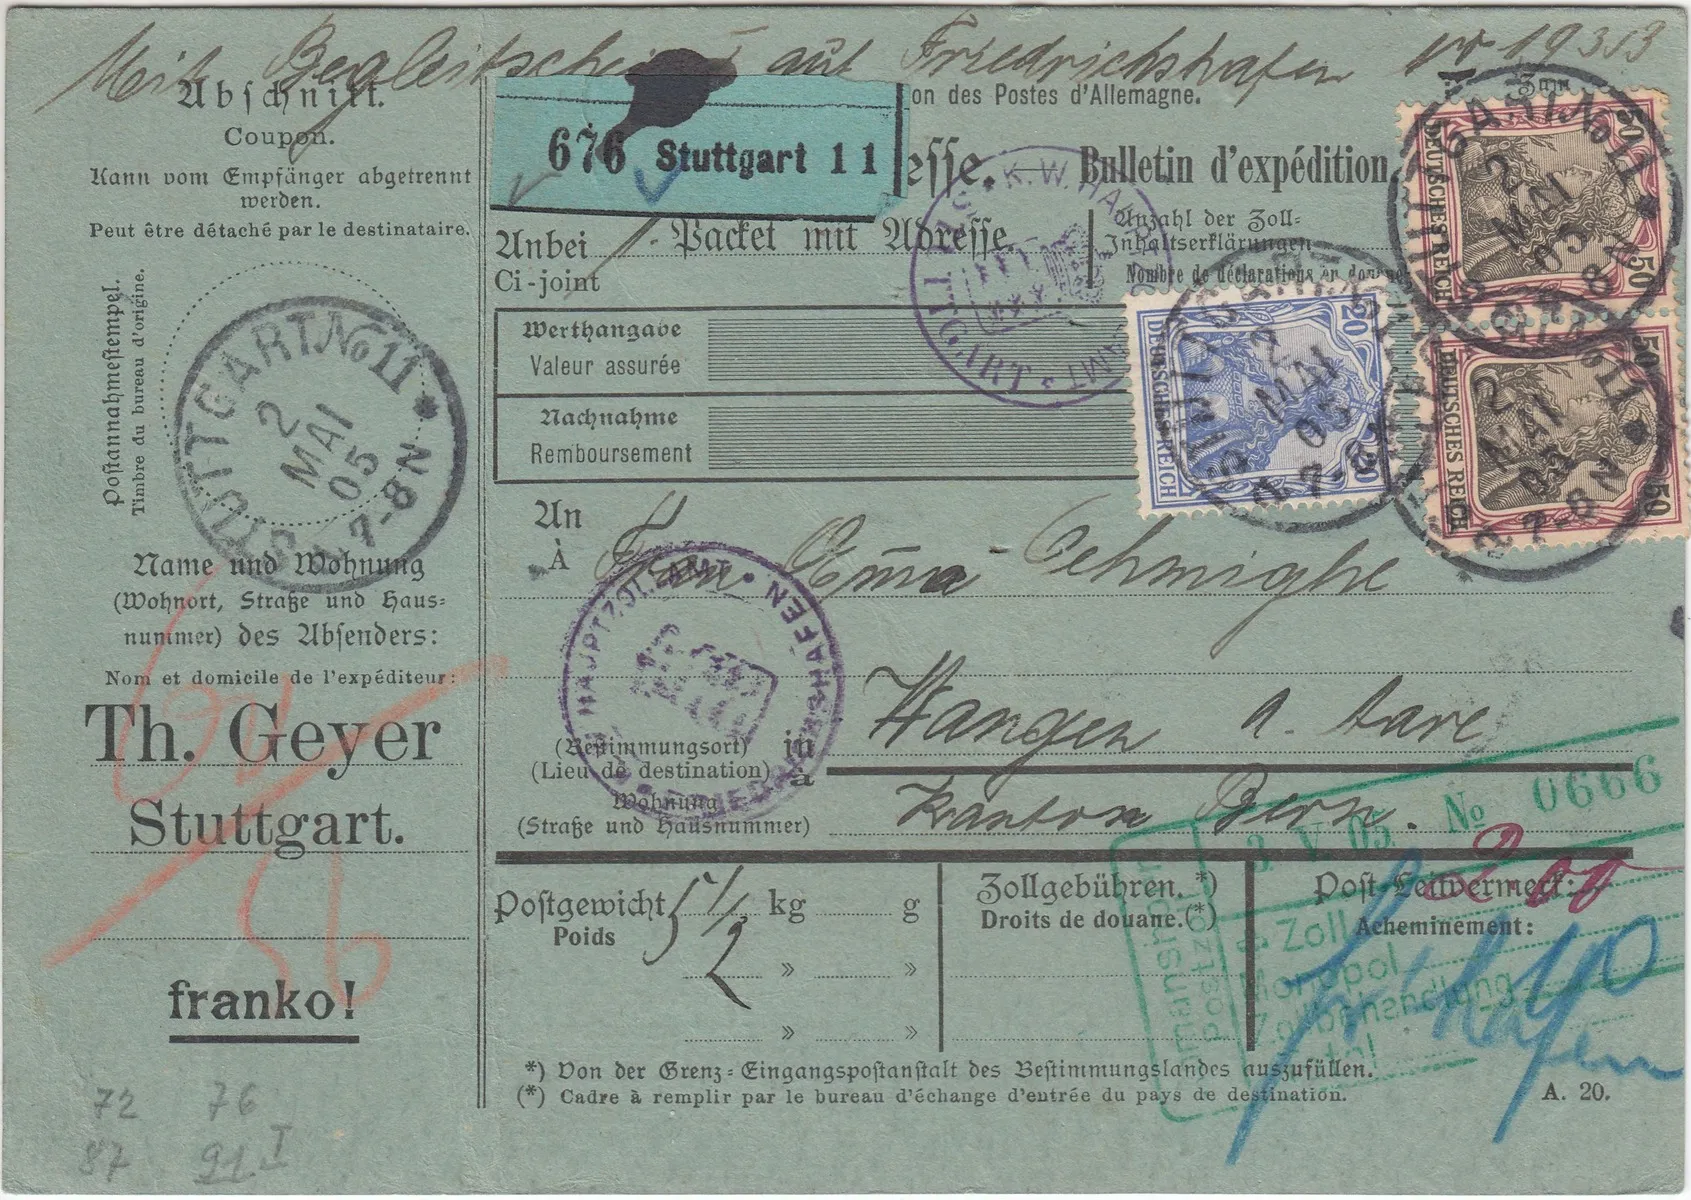 Mit Begleitschein I auf Friedrichshafen No 19313
Abschnitt.
Coupon.
Kann vom Empfänger abgetrennt
werden.
Peut être détaché par le destinataire.
Postannahmestempel.
Timbre du bureau d'origine.
STUTTGART No 11
2
MAI
05
N 7-8 N
Name und Wohnung
(Wohnort, Straße und Haus=
nummer) des Absenders:
Nom et domicile de l'expéditeur:
Th. Geyer
Stuttgart.
franko!
72 76
87 91 I
676 Stuttgart 11
on des Postes d'Allemagne.
esse. — Bulletin d'expédition.
Anbei 1 Packet mit Adresse.
Ci-joint
Anzahl der Zoll=
Inhaltserklärungen
Nombre de déclarations en douane
K.W. HAUPTZOLLAMT
STUTTGART
Werthangabe
Valeur assurée
Nachnahme
Remboursement
DEUTSCHES REICH 50
DEUTSCHES REICH 50
DEUTSCHES REICH 20
STUTTGART No 11
2
MAI
05
7-8 N
An Frau Emma
À
HAUPTZOLLAMT FRIEDRICHSHAFEN
(Bestimmungsort) in Wangen a. Aare
(Lieu de destination) à
Wohnung Kanton Bern.
(Straße und Hausnummer)
3 V 05 No 0666
Postgewicht 5 1/2 kg g
Poids
» »
» »
Zollgebühren.*)
Droits de douane.(*)
Post-Leitvermerk:
Acheminement:
2.00
Zoll
Monopol
Zollbehandlung
Total
Romanshorn
Postzoll
Fr. Hafen
*) Von der Grenz=Eingangspostanstalt des Bestimmungslandes auszufüllen.
(*) Cadre à remplir par le bureau d'échange d'entrée du pays de destination.
A. 20.